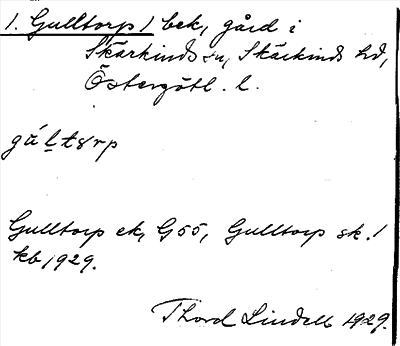 1. Gulltorp / bek, gård i
Skärkinds sn, Skärkinds hd,
Östergötl. l.
gúltørp
Gulltorp ek, G55, Gulltorp sk. /
kb 1929.
Thord Lindell 1929.